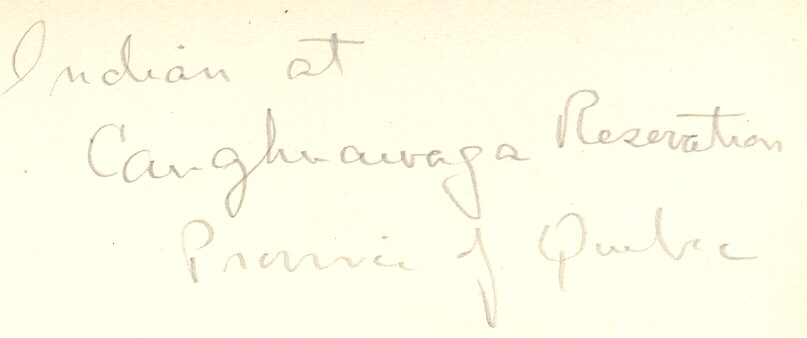 Indian at
Caughnawaga Reservation
Province of Quebec